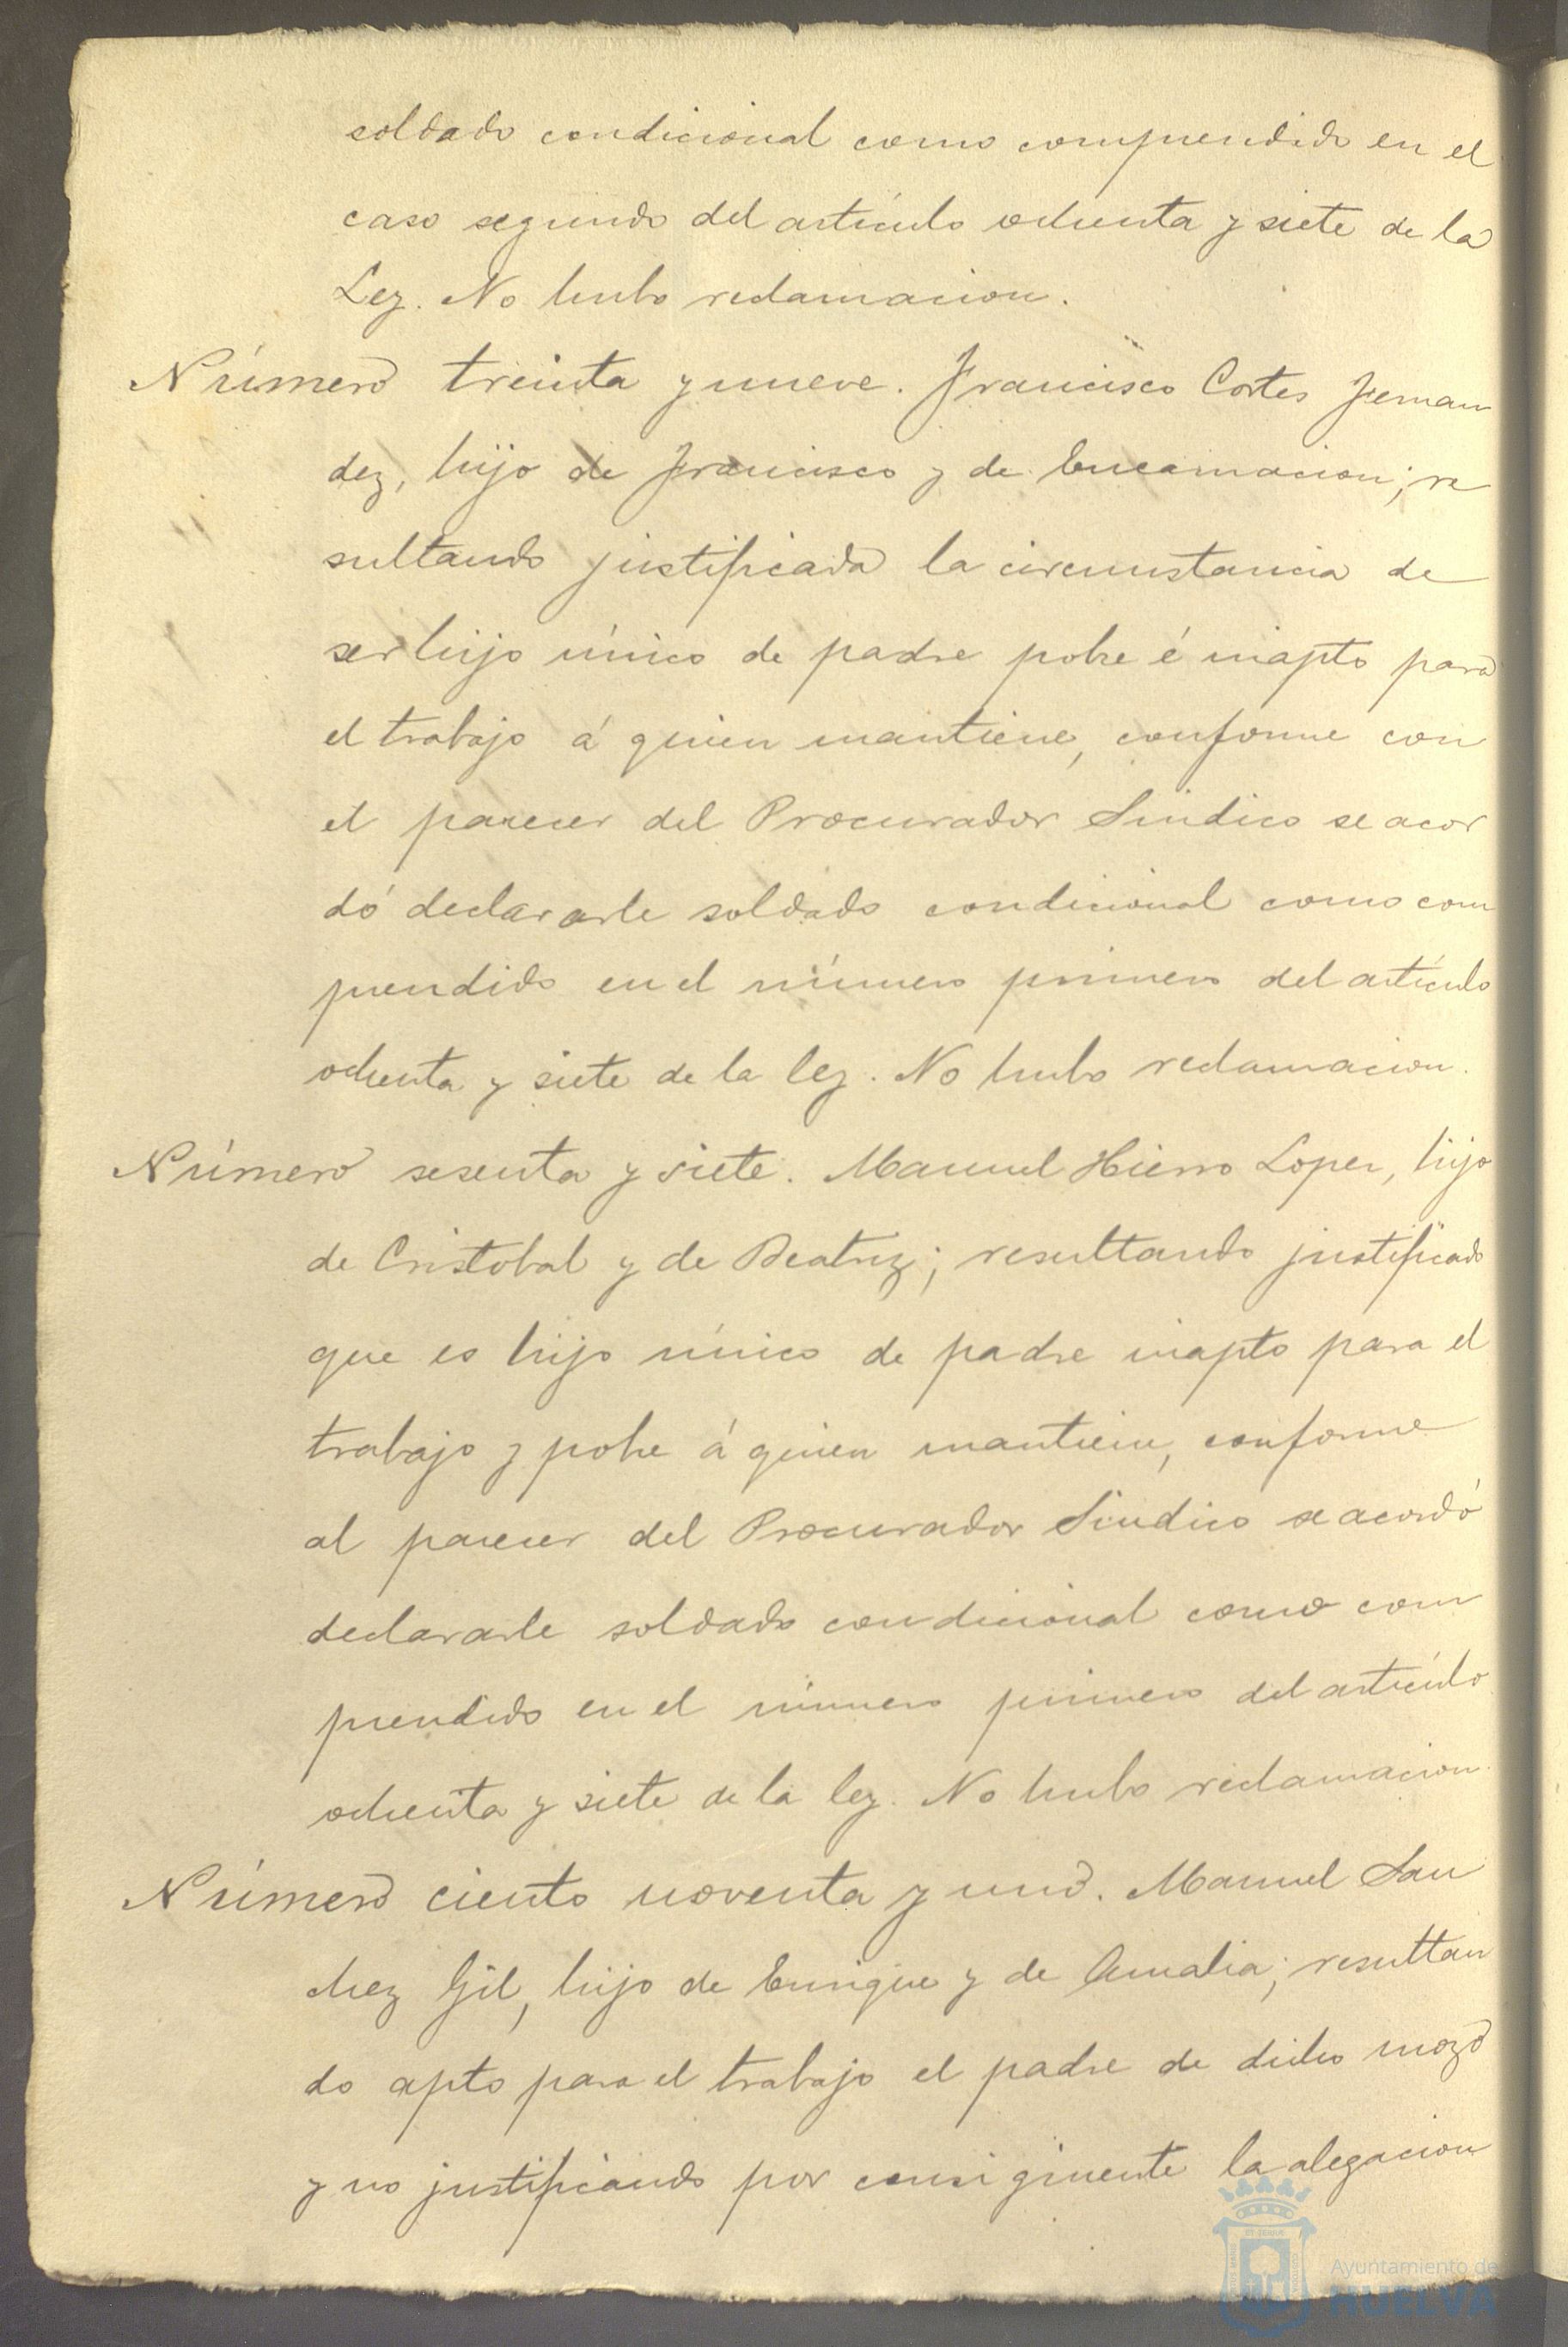 soldado condicional como comprendido en el
caso segundo del artículo ochenta y siete de la
Ley. No hubo reclamacion.
Número treinta y nueve. Francisco Cortes Fernan
dez, hijo de Francisco y de Encarnacion; re
sultando justificada la circunstancia de
ser hijo único de padre pobre é inapto para
el trabajo á quien mantiene, conforme con
el parecer del Procurador Sindico se acor
dó declararle soldado condicional como com
prendido en el número primero del artículo
ochenta y siete de la ley. No hubo reclamacion.
Número sesenta y siete. Manuel Hierro Lopez, hijo
de Cristobal y de Beatriz; resultando justificado
que es hijo único de padre inapto para el
trabajo y pobre á quien mantiene, conforme
al parecer del Procurador Sindico se acordó
declararle soldado condicional como com
prendido en el número primero del artículo
ochenta y siete de la ley. No hubo reclamacion.
Número ciento noventa y uno. Manuel San
chez Gil, hijo de Enrique y de Amalia; resultan
do apto para el trabajo el padre de dicho mozo
y no justificando por consiguiente la alegacion
Ayuntamiento de
HUELVA